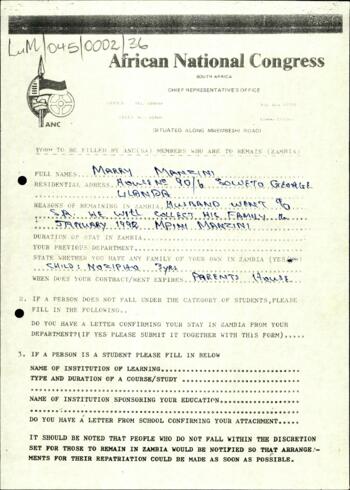 LUM/045/0002/36
African National Congress
SOUTH AFRICA
CHIEF REPRESENTATIVE'S OFFICE
ANC
(SITUATED ALONG MWEMBESHI ROAD)
FORM TO BE FILLED BY ANC(SA) MEMBERS WHO ARE TO REMAIN (ZAMBIA)
FULL NAMES. MARRY MANZINI
RESIDENTIAL ADDRESS. HOUSE NO 90/6 SOWETO GEORGE
LILANDA
REASONS OF REMAINING IN ZAMBIA. HUSBAND WENT
S.A. HE WILL COLLECT HIS FAMILY
JANUARY 1992 MANZINI
DURATION OF STAY IN ZAMBIA
YOUR PREVIOUS DEPARTMENT
STATE WHETHER YOU HAVE ANY FAMILY OF YOUR OWN IN ZAMBIA (YES
CHILD: NOSIPHO 3yrs
WHEN DOES YOUR CONTRACT/WENT EXPIRES. PARENTS HOUSE
2. IF A PERSON DOES NOT FALL UNDER THE CATEGORY OF STUDENTS, PLEASE
FILL IN THE FOLLOWING..
DO YOU HAVE A LETTER CONFIRMING YOUR STAY IN ZAMBIA FROM YOUR
DEPARTMENT?(IF YES PLEASE SUBMIT IT TOGETHER WITH THIS FORM).....
3. IF A PERSON IS A STUDENT PLEASE FILL IN BELOW
NAME OF INSTITUTION OF LEARNING
TYPE AND DURATION OF A COURSE/STUDY
NAME OF INSTITUTION SPONSORING YOUR EDUCATION
DO YOU HAVE A LETTER FROM SCHOOL CONFIRMING YOUR ATTACHMENT.....
IT SHOULD BE NOTED THAT PEOPLE WHO DO NOT FALL WITHIN THE DISCRETION
SET FOR THOSE TO REMAIN IN ZAMBIA WOULD BE NOTIFIED SO THAT ARRANGE-
MENTS FOR THEIR REPATRIATION COULD BE MADE AS SOON AS POSSIBLE.